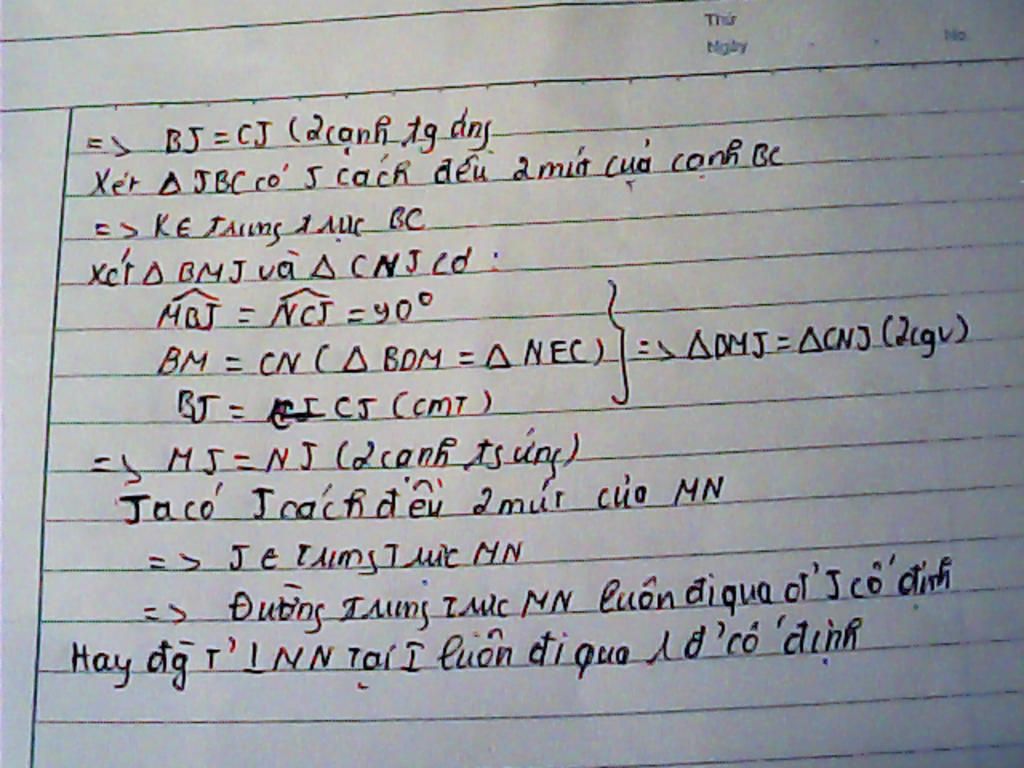 Thứ
Ngày
No.
=> BJ = CJ (2 cạnh tg ứng
Xét Δ JBC có J cách đều 2 mút của cạnh BC
=> K ∈ Trung trực BC
Xét Δ BMJ và Δ CNJ có :
MBJ = NCJ = 90°
BM = CN ( Δ BDM = Δ NEC ) } => Δ BMJ = Δ CNJ (2cgv)
BJ = CJ (cmT)
=> MJ = NJ (2 cạnh ts ứng)
Ta có J cách đều 2 mút của MN
=> J ∈ Trung Trực MN
=> Đường Trung Trực MN luôn đi qua đ' J cố định
Hay đg T' ⊥ MN Tại I luôn đi qua 1 đ' cố định